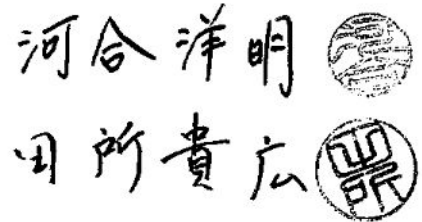 河合洋明
田所貴広